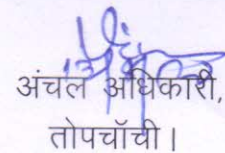 अंचल अधिकारी,
तोपचाॅची।